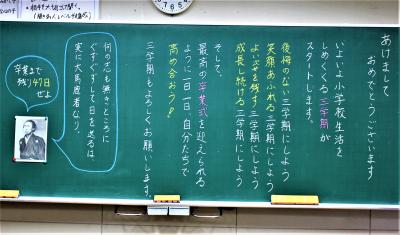 あけまして
おめでとうございます
いよいよ小学校生活を
しめくくる三学期が
スタートします。
後悔のない三学期にしよう
笑顔あふれる三学期にしよう
よい姿を残す三学期にしよう
成長し続ける三学期にしよう
そして、
最高の卒業式を迎えられる
ように一日一日、自分たちで
高め合おう!
三学期もよろしくお願いします。
何の志も無きところに
ぐずぐずして日を送るは、
実に大馬鹿者なり。
卒業まで
残り47日
ぜよ